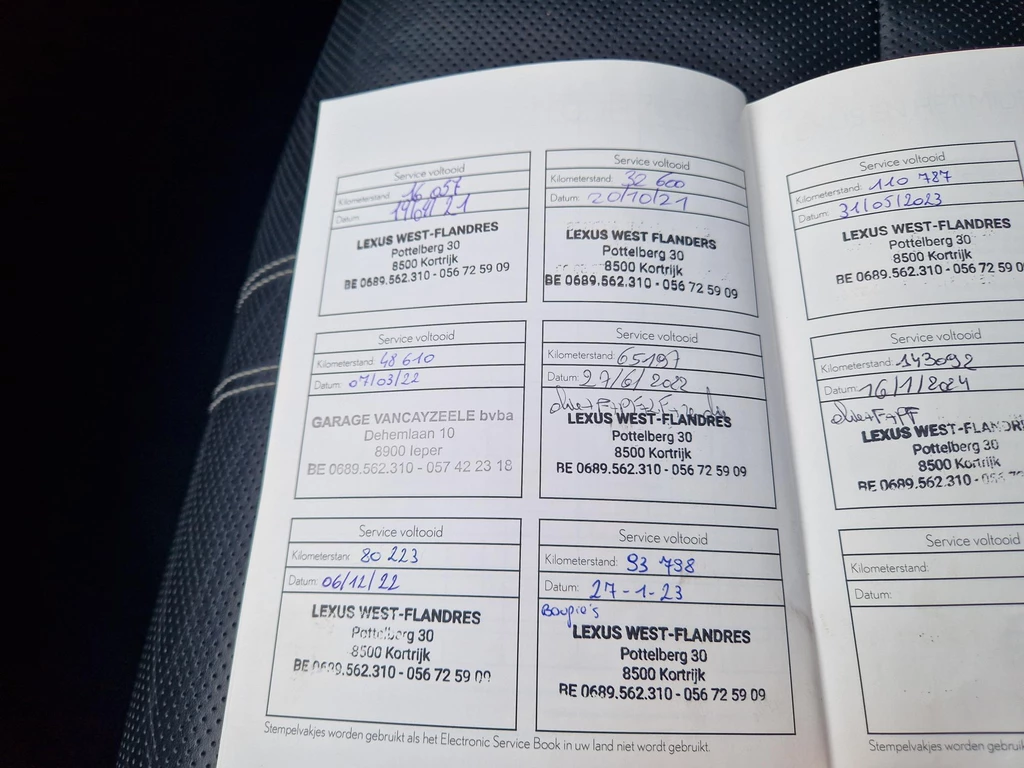 Service voltooid
Kilometerstand: 16 057
Datum: 21
LEXUS WEST-FLANDRES
Pottelberg 30
8500 Kortrijk
BE 0689.562.310 - 056 72 59 09
Service voltooid
Kilometerstand: 32 600
Datum: 20/10/21
LEXUS WEST FLANDERS
Pottelberg 30
8500 Kortrijk
BE 0689.562.310 - 056 72 59 09
Service voltooid
Kilometerstand: 48 610
Datum: 07/03/22
GARAGE VANCAYZEELE bvba
Dehemlaan 10
8900 Ieper
BE 0689.562.310 - 057 42 23 18
Service voltooid
Kilometerstand: 65197
Datum: 27/6/2022
LEXUS WEST-FLANDRES
Pottelberg 30
8500 Kortrijk
BE 0689.562.310 - 056 72 59 09
Service voltooid
Kilometerstand: 80 223
Datum: 06/12/22
LEXUS WEST-FLANDRES
Pottelberg 30
8500 Kortrijk
BE 0689.562.310 - 056 72 59 09
Service voltooid
Kilometerstand: 93 798
Datum: 27-1-23
Bougie's
LEXUS WEST-FLANDRES
Pottelberg 30
8500 Kortrijk
BE 0689.562.310 - 056 72 59 09
Stempelvakjes worden gebruikt als het Electronic Service Book in uw land niet wordt gebruikt.
Service voltooid
Kilometerstand: 110 787
Datum: 31/05/2023
LEXUS WEST-FLANDRES
Pottelberg 30
8500 Kortrijk
BE 0689.562.310 - 056 72 59 0
Service voltooid
Kilometerstand: 143092
Datum: 16/1/2024
LEXUS WEST-FLANDRE
Pottelberg 30
8500 Kortrijk
BE 0689.562.310 - 056
Service voltooid
Kilometerstand:
Datum:
Stempelvakjes worden gebruikt